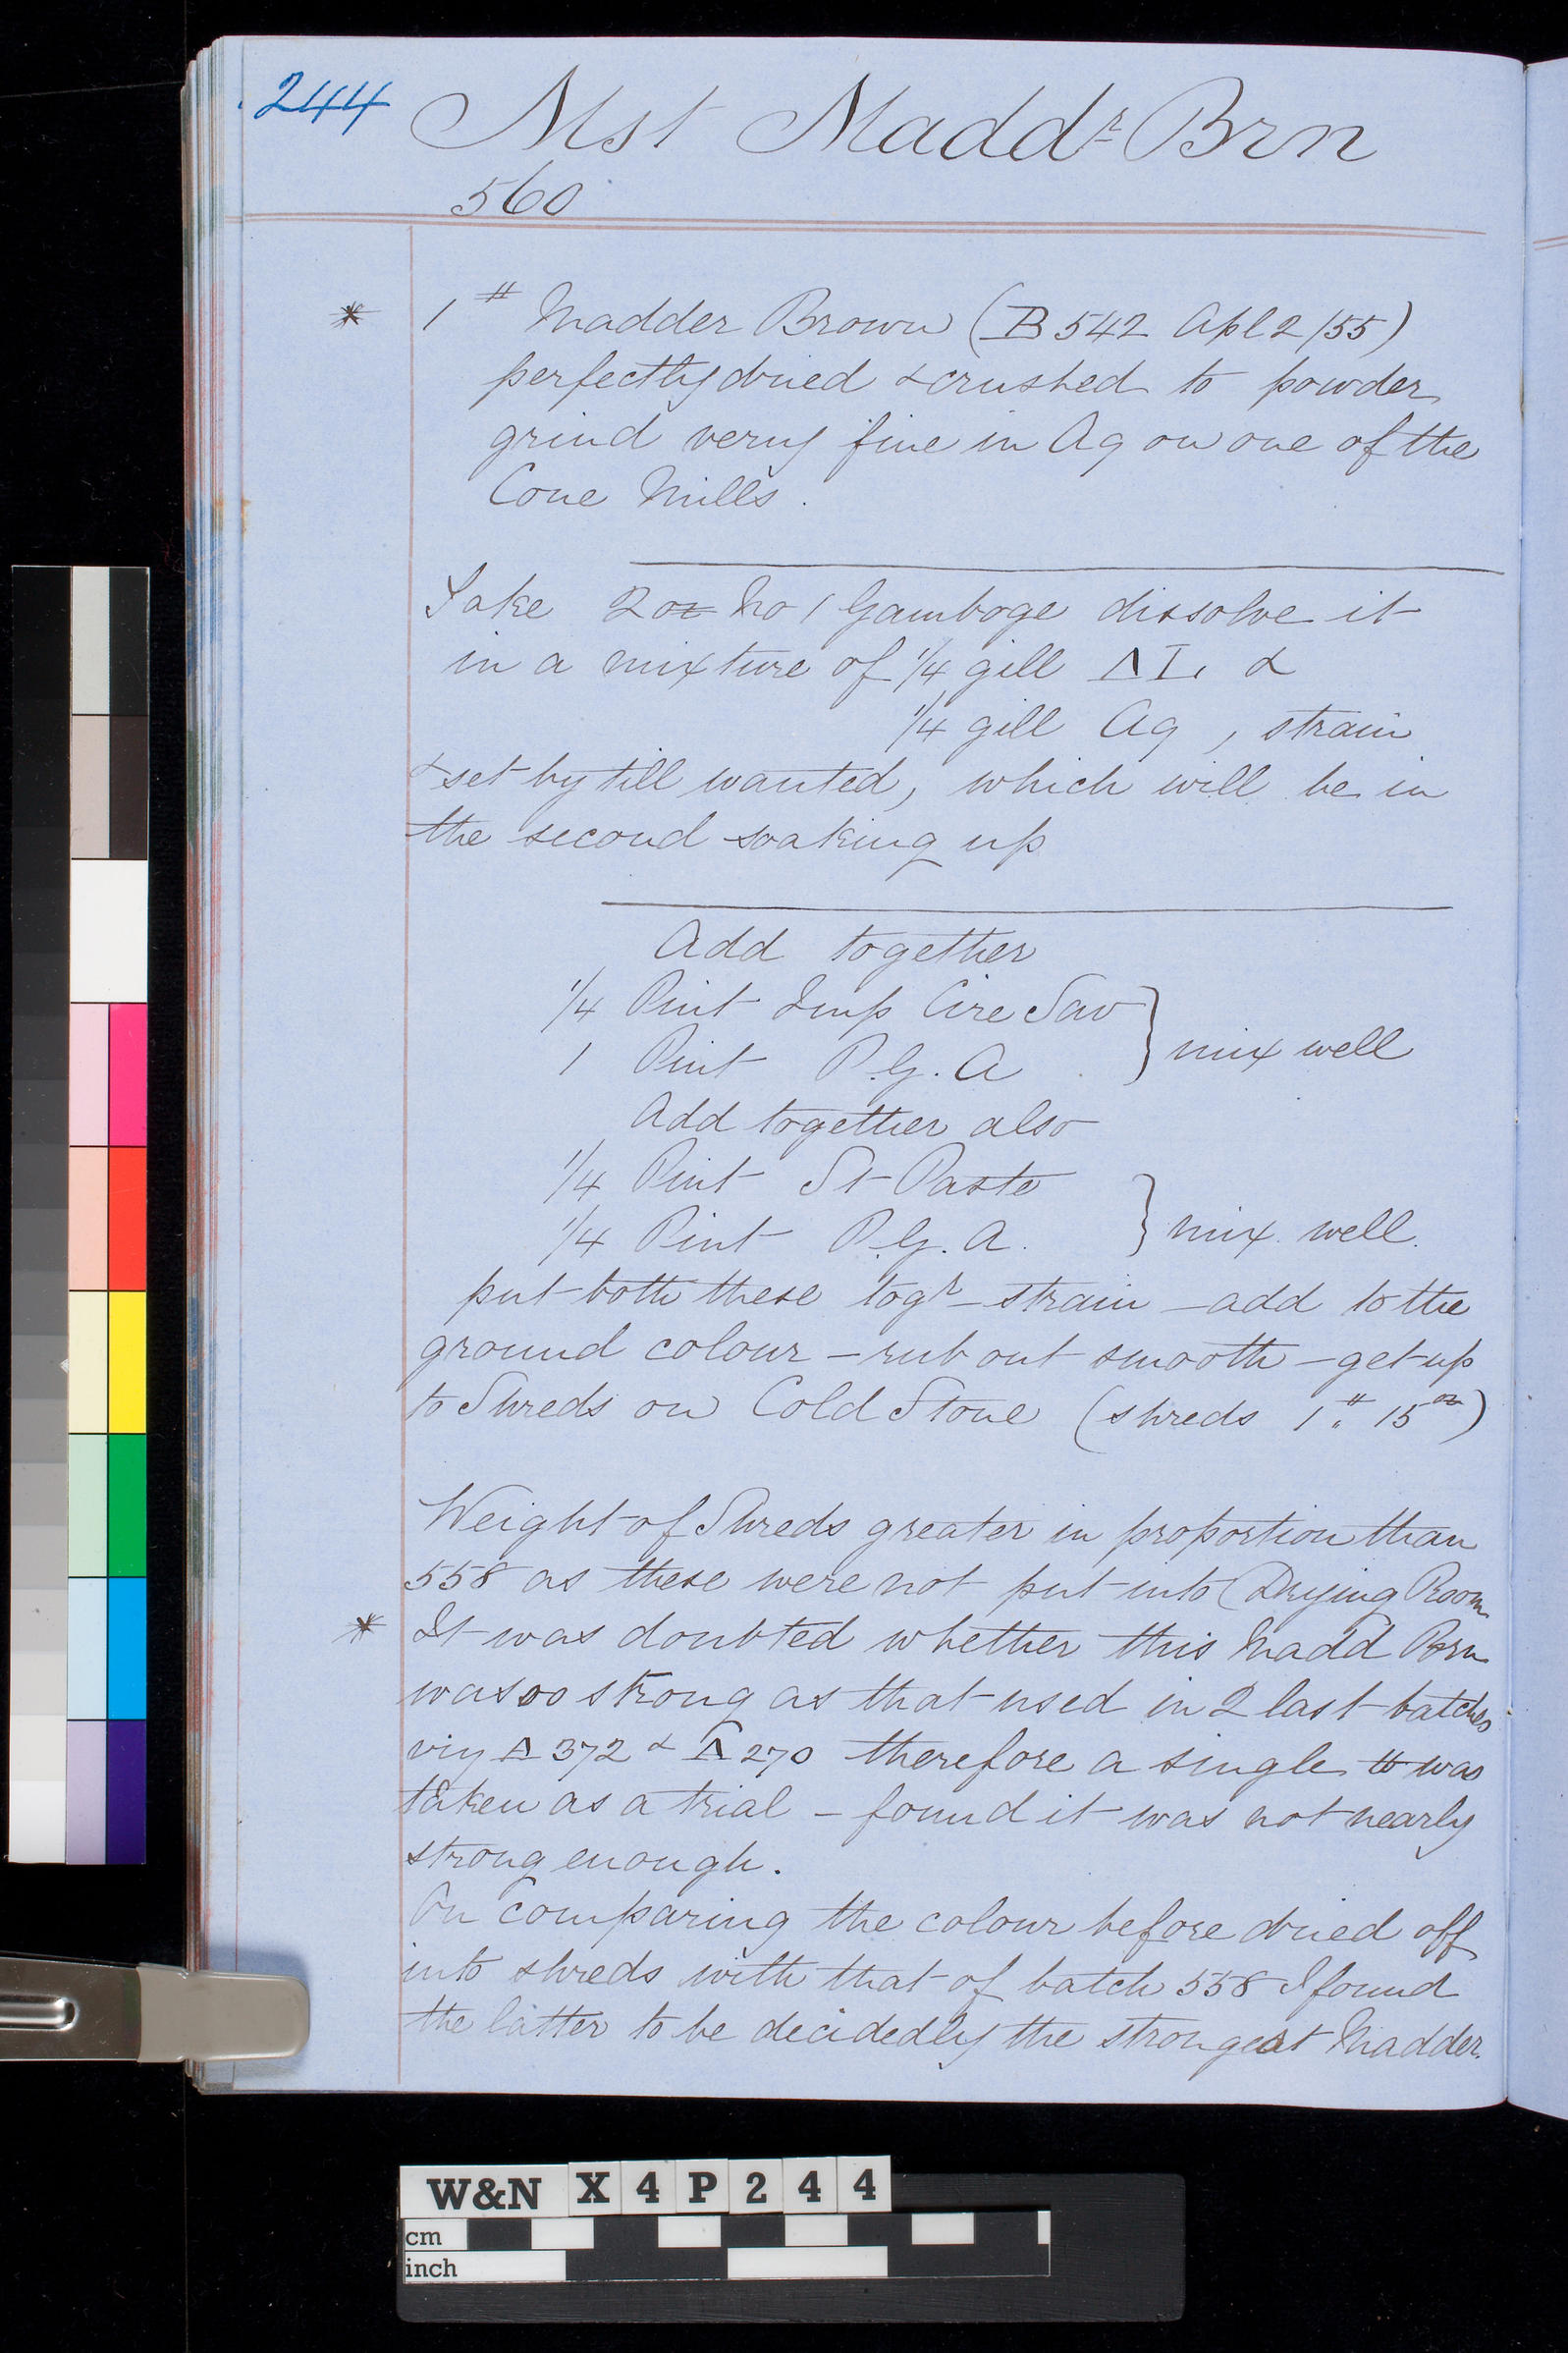 244
Mst Maddr Brn
560
* 1 # Madder Brown (B 542 Apl 2/55)
perfectly dried & crushed to powder
grind very fine in Aq on one of the
Cone Mills.
Take 2 oz No 1 Gamboge dissolve it
in a mixture of 1/4 gill Λ I, &
1/4 gill Aq, strain
& set by till wanted, which will be in
the second soaking up
Add together
1/4 Pint Imp Cire Sav } mix well
1 Pint P.G.A
Add together also
1/4 Pint St Paste
1/4 Pint P.G.A. } mix well.
put both these togr - strain - add to the
ground colour - rub out smooth - get up
to Shreds on Cold Stone (shreds 1 # 15 oz)
Weight of Shreds greater in proportion than
558 as these were not put into Drying Room
* It was doubted whether this Madd Brn
was so strong as that used in 2 last batches
viz 372 & 270 therefore a single lb was
taken as a trial - found it was not nearly
strong enough.
On comparing the colour before dried off
into shreds with that of batch 558 I found
the latter to be decidedly the strongest Madder.
W&N X4P244
cm
inch